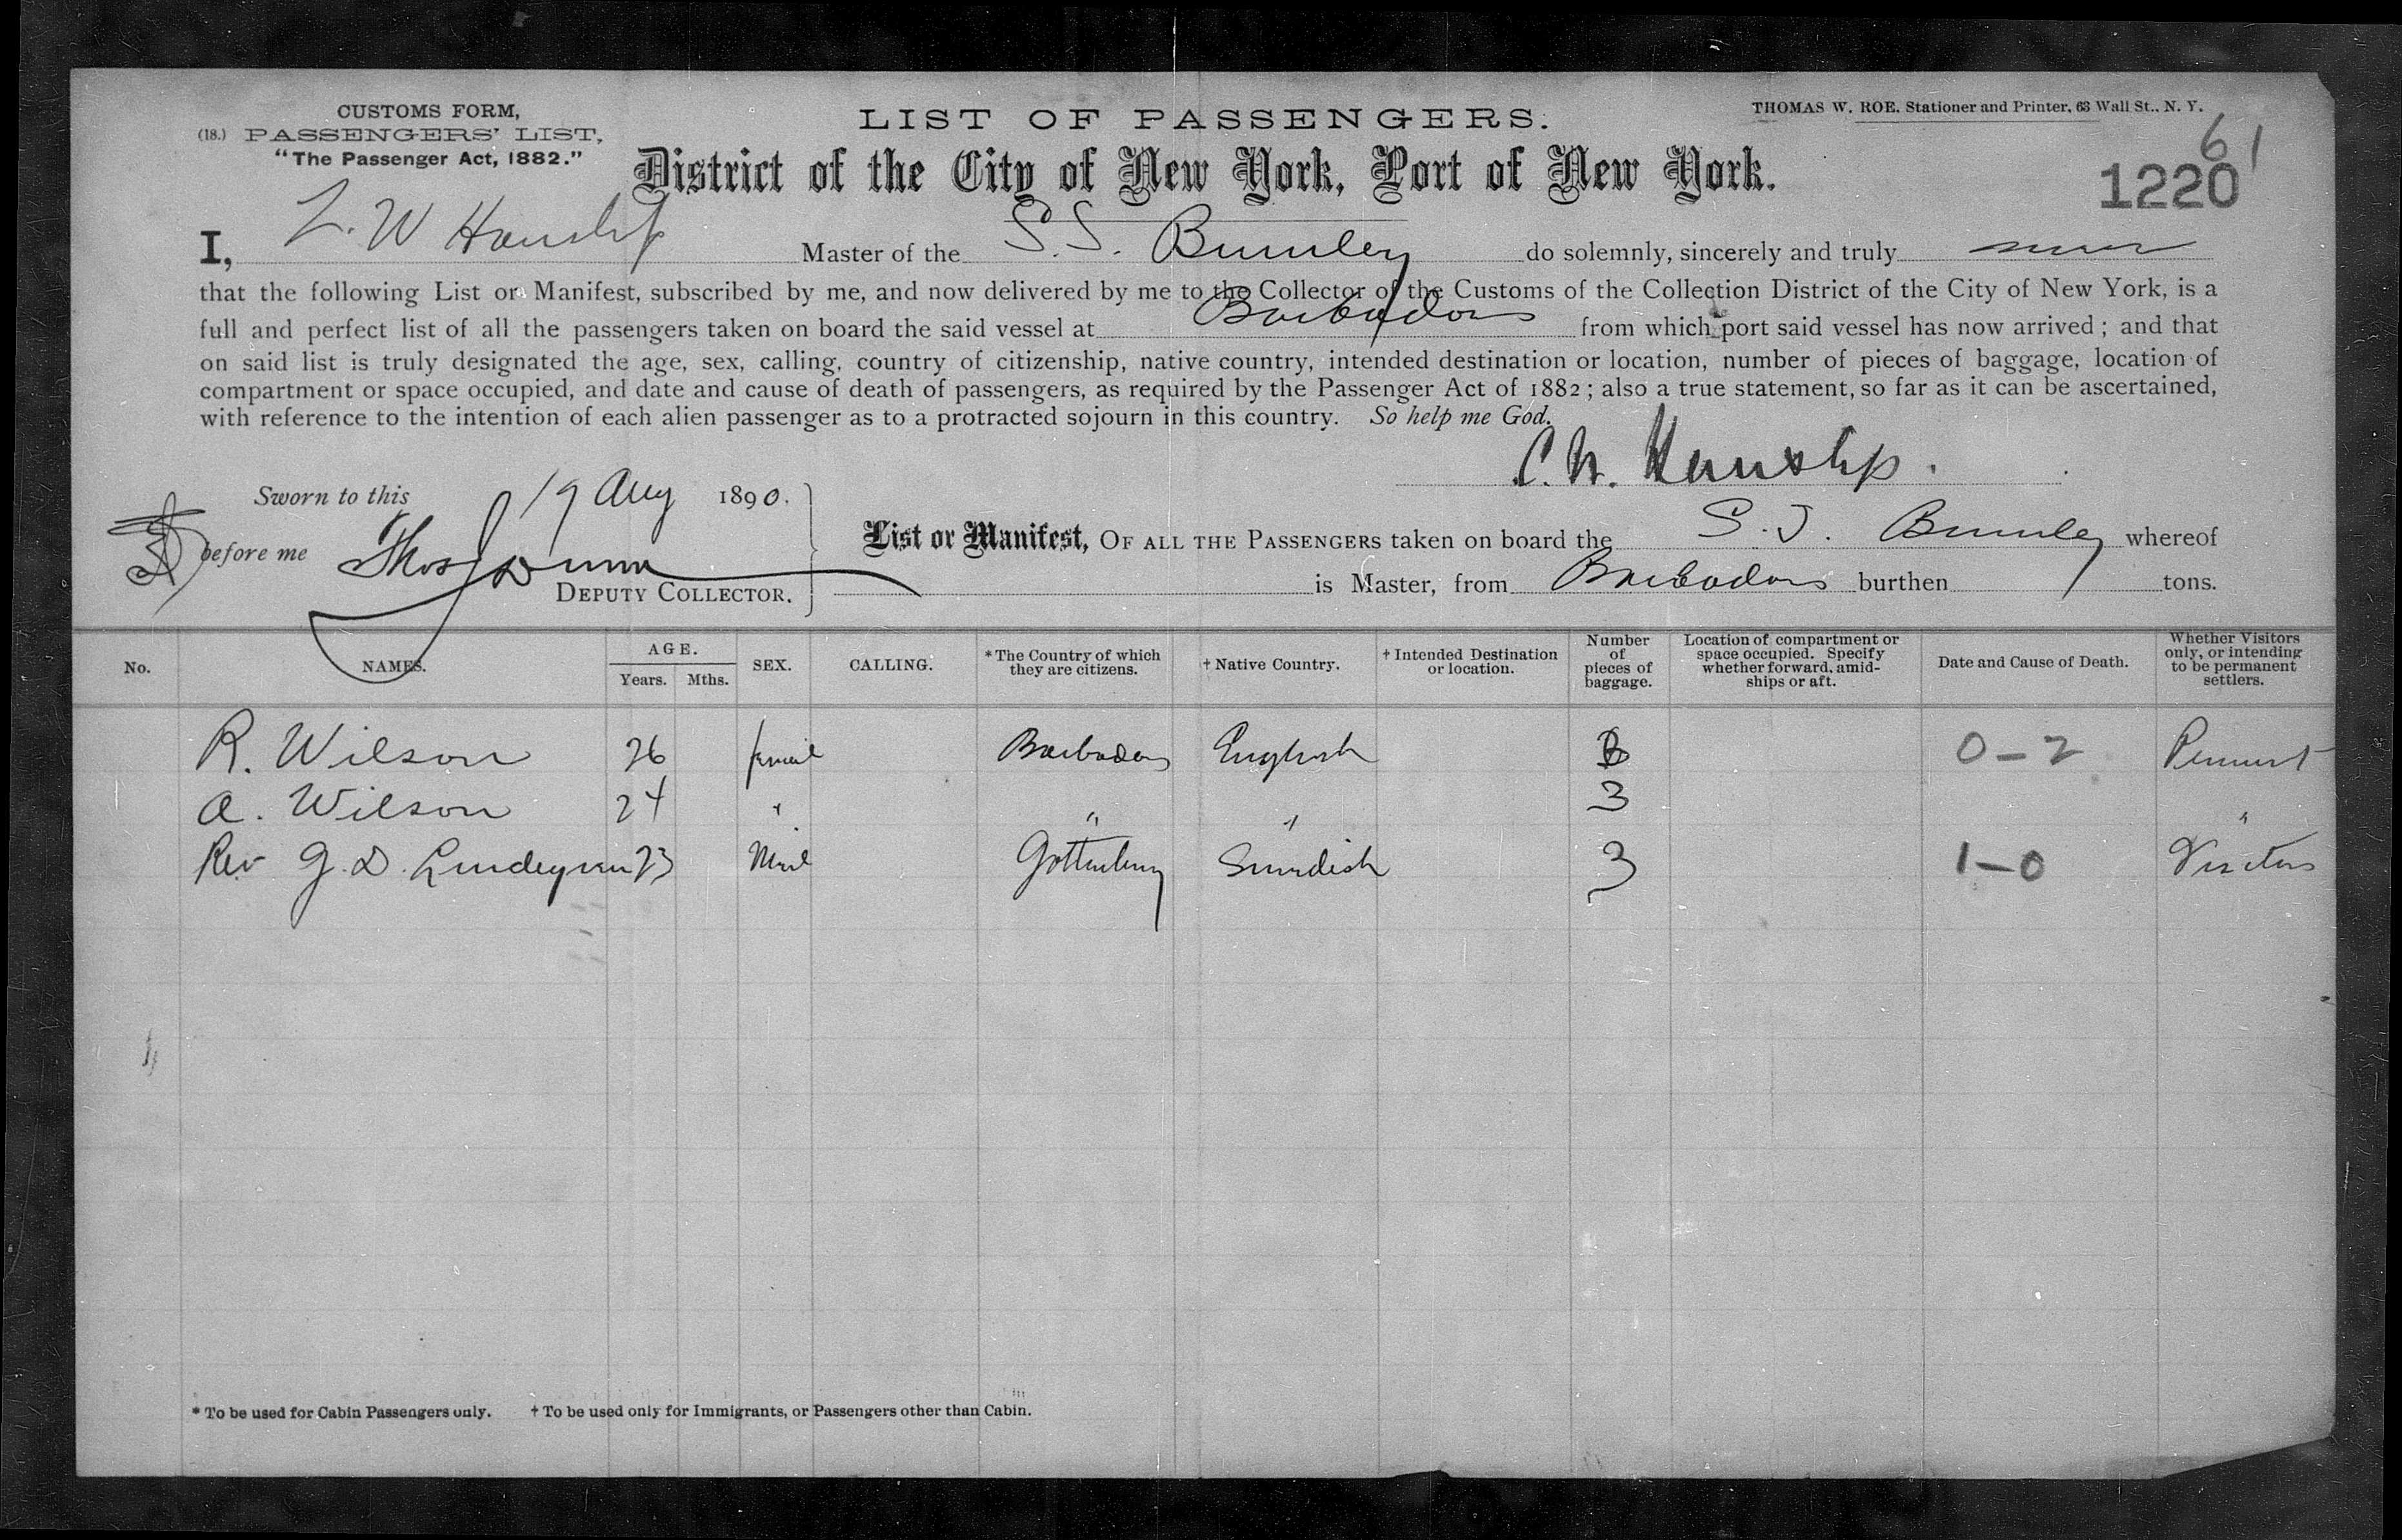 CUSTOMS FORM,
(18.) PASSENGERS' LIST,
"The Passenger Act, 1882."
LIST OF PASSENGERS.
THOMAS W. ROE. Stationer and Printer, 63 Wall St., N. Y.
District of the City of New York, Port of New York.
61
1220
I, W Master of the S.S. do solemnly, sincerely and truly swear
that the following List or Manifest, subscribed by me, and now delivered by me to the Collector of the Customs of the Collection District of the City of New York, is a
full and perfect list of all the passengers taken on board the said vessel at Barbados from which port said vessel has now arrived; and that
on said list is truly designated the age, sex, calling, country of citizenship, native country, intended destination or location, number of pieces of baggage, location of
compartment or space occupied, and date and cause of death of passengers, as required by the Passenger Act of 1882; also a true statement, so far as it can be ascertained,
with reference to the intention of each alien passenger as to a protracted sojourn in this country. So help me God.
Sworn to this 19 Aug 1890.
before me Thos J Dunn
DEPUTY COLLECTOR.
List or Manifest, OF ALL THE PASSENGERS taken on board the S.S. whereof
is Master, from Barbados burthen tons.
No. NAMES. AGE. Years. Mths. SEX. CALLING. * The Country of which they are citizens. † Native Country. † Intended Destination or location. Number of pieces of baggage. Location of compartment or space occupied. Specify whether forward, amidships or aft. Date and Cause of Death. Whether Visitors only, or intending to be permanent settlers.
R. Wilson 26 female Barbados English 0-2
A. Wilson 24 " " " 3 "
Rev G. D. 23 Male Swedish 3 1-0 Visitors
* To be used for Cabin Passengers only. † To be used only for Immigrants, or Passengers other than Cabin.